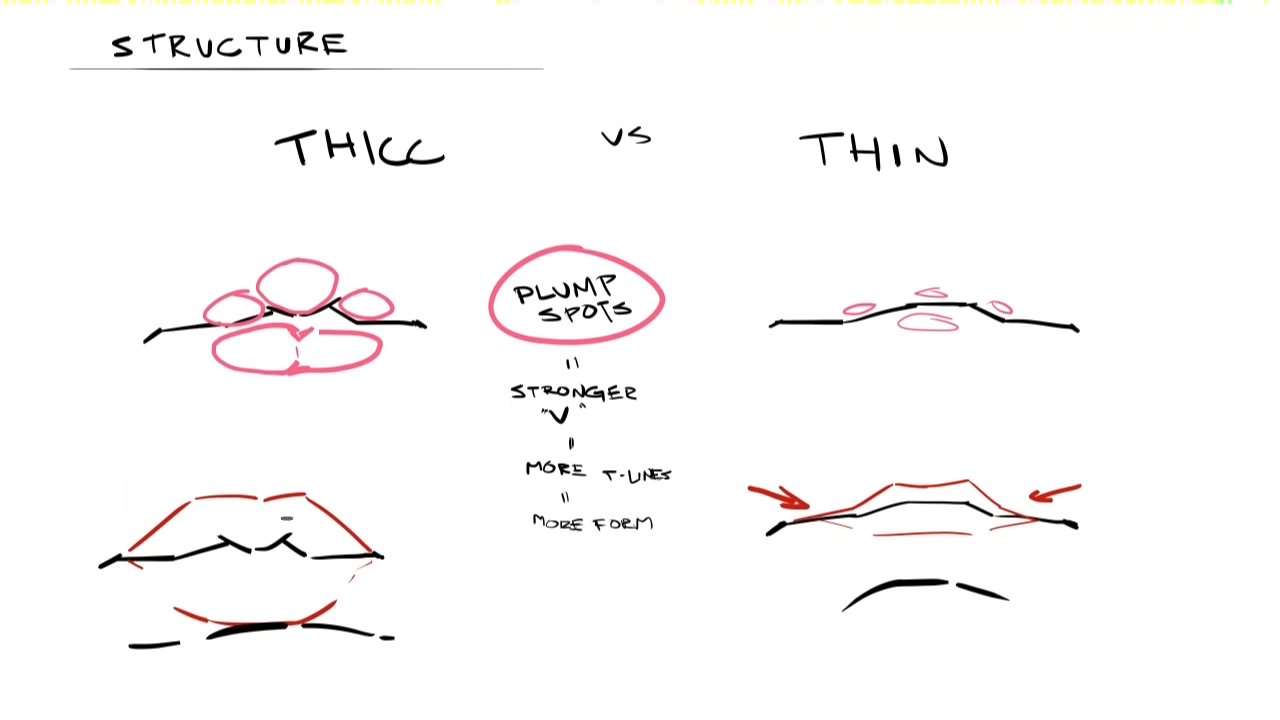 STRUCTURE
THICC vs THIN
PLUMP
SPOTS
=
STRONGER
"V"
=
MORE T-LINES
=
MORE FORM